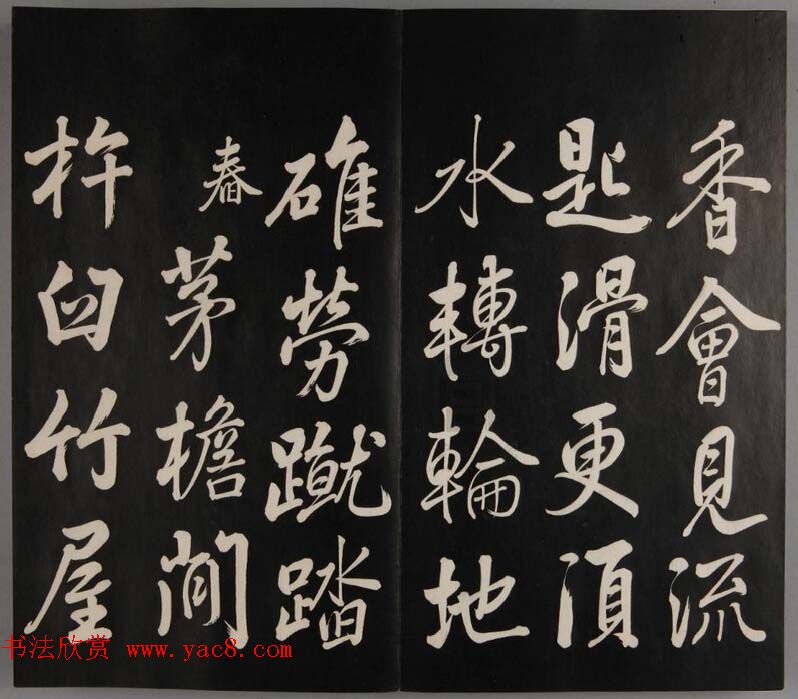 香會見流
匙滑更須
水轉輪地
碓勞蹴踏
舂
茅檐間
杵臼竹屋
书法欣赏 www.yac8.com